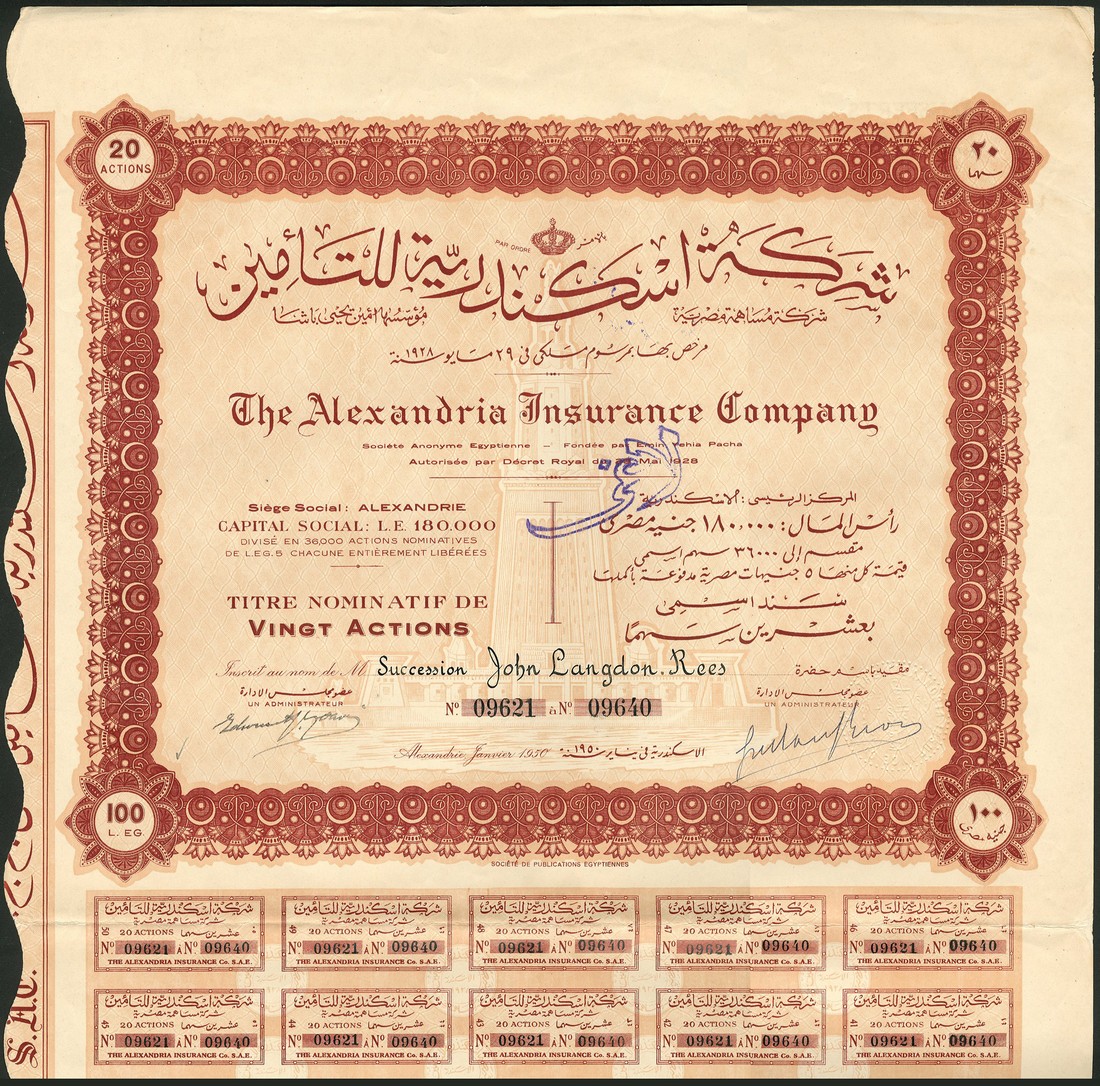 20
ACTIONS
٢٠
سهما
PAR ORDRE
بالأمر
شركة اسكندرية للتأمين
شركة مساهمة مصرية
مؤسسها أمين يحيى باشا
مرخص بها بمرسوم ملكى فى ٢٩ مايو سنة ١٩٢٨
The Alexandria Insurance Company
Société Anonyme Egyptienne — Fondée par Emin Yehia Pacha
Autorisée par Décret Royal du Mai 1928
Siège Social: ALEXANDRIE
CAPITAL SOCIAL: L.E. 180.000
DIVISÉ EN 36,000 ACTIONS NOMINATIVES
DE L.EG. 5 CHACUNE ENTIÈREMENT LIBÉRÉES
TITRE NOMINATIF DE
VINGT ACTIONS
المركز الرئيسى: الاسكندرية
رأس المال: ١٨٠.٠٠٠ جنيه مصرى
مقسم إلى ٣٦٠٠٠ سهم اسمى
قيمة كل منها ٥ جنيهات مصرية مدفوعة بأكملها
سند اسمى
بعشرين سهما
Inscrit au nom de M Succession John Langdon. Rees مقيد باسم حضرة
عضو مجلس الادارة
UN ADMINISTRATEUR
عضو مجلس الادارة
UN ADMINISTRATEUR
Nº 09621 à Nº 09640
Alexandrie Janvier 1950 الاسكندرية فى يناير سنة ١٩٥٠
100
L. EG.
١٠٠
جنيه مصرى
SOCIÉTÉ DE PUBLICATIONS EGYPTIENNES
شركة اسكندرية للتأمين
شركة مساهمة مصرية
20 ACTIONS عشرين سهما
Nº 09621 À Nº 09640
THE ALEXANDRIA INSURANCE Co. S.A.E.
شركة اسكندرية للتأمين
شركة مساهمة مصرية
20 ACTIONS عشرين سهما
Nº 09621 À Nº 09640
THE ALEXANDRIA INSURANCE Co. S.A.E.
شركة اسكندرية للتأمين
شركة مساهمة مصرية
20 ACTIONS عشرين سهما
Nº 09621 À Nº 09640
THE ALEXANDRIA INSURANCE Co. S.A.E.
شركة اسكندرية للتأمين
شركة مساهمة مصرية
20 ACTIONS عشرين سهما
Nº 09621 À Nº 09640
THE ALEXANDRIA INSURANCE Co. S.A.E.
شركة اسكندرية للتأمين
شركة مساهمة مصرية
20 ACTIONS عشرين سهما
Nº 09621 À Nº 09640
THE ALEXANDRIA INSURANCE Co. S.A.E.
شركة اسكندرية للتأمين
شركة مساهمة مصرية
20 ACTIONS عشرين سهما
Nº 09621 À Nº 09640
THE ALEXANDRIA INSURANCE Co. S.A.E.
شركة اسكندرية للتأمين
شركة مساهمة مصرية
20 ACTIONS عشرين سهما
Nº 09621 À Nº 09640
THE ALEXANDRIA INSURANCE Co. S.A.E.
شركة اسكندرية للتأمين
شركة مساهمة مصرية
20 ACTIONS عشرين سهما
Nº 09621 À Nº 09640
THE ALEXANDRIA INSURANCE Co. S.A.E.
شركة اسكندرية للتأمين
شركة مساهمة مصرية
20 ACTIONS عشرين سهما
Nº 09621 À Nº 09640
THE ALEXANDRIA INSURANCE Co. S.A.E.
شركة اسكندرية للتأمين
شركة مساهمة مصرية
20 ACTIONS عشرين سهما
Nº 09621 À Nº 09640
THE ALEXANDRIA INSURANCE Co. S.A.E.